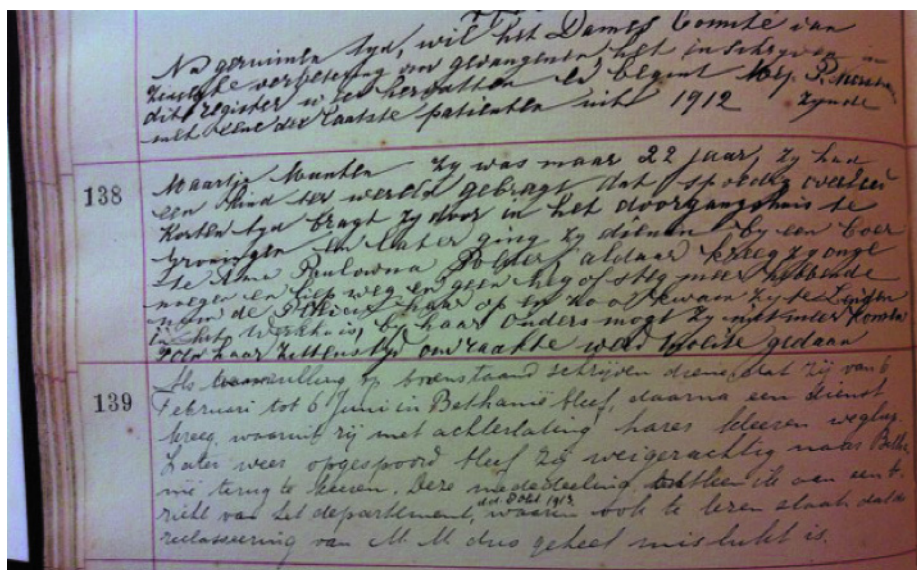 Na geruimen tyd, wil het Dames Comité van
zedelyke verbetering voor gevangenen, het inschryven in
dit register weer hervatten en begint Mej. P.
met eene der laatste patienten uit 1912 zynde
138
Maartje Munten Zy was maar 22 jaar, zy had
een kind ter wereld gebragt dat spoedig overleed
Korten tyd bragt zy door in het doorgangshuis te
Groningen en later ging zy dienen by een boer
te Anna Paulowna Polder, aldaar kreeg zy onge
noegen en liep weg en geen heg of steg meer hebbende
nam de Politie haar op en zoo kwam zy te Leijden
in het Werkhuis, by haar ouders mogt zy niet meer komen
Toen haar zittenstyd om raakte werd moeite gedaan
139
Als aanvulling op bovenstaand schrijven diene, dat zij van 6
Februari tot 6 Juni in Bethanië bleef, daarna een dienst
kreeg, waaruit zij met achterlating hares kleeren wegliep.
Later weer opgespoord bleef zij weigerachtig naar Betha
nië terug te keeren. Deze mededeeling ontleen ik aan een b
richt van het departement, d.d. 8 Oct 1913, waarin ook te lezen staat dat de
reclasseering van M M dus geheel mislukt is.